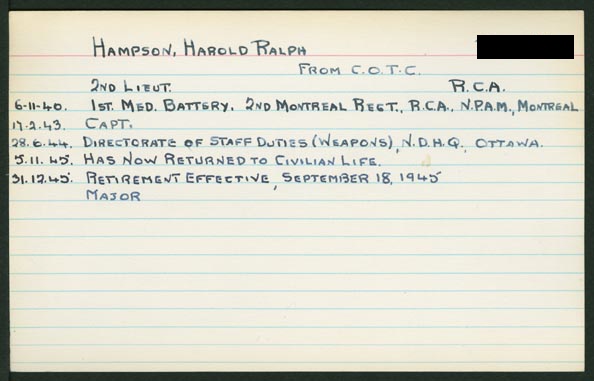 HAMPSON, HAROLD RALPH
FROM C.O.T.C.
2ND LIEUT. R.C.A.
6-11-40. 1ST. MED. BATTERY. 2ND MONTREAL REGT., R.C.A., N.P.A.M., MONTREAL
17.2.43. CAPT.
28.6.44. DIRECTORATE OF STAFF DUTIES (WEAPONS), N.D.H.Q., OTTAWA.
5.11.45. HAS NOW RETURNED TO CIVILIAN LIFE.
31.12.45. RETIREMENT EFFECTIVE, SEPTEMBER 18, 1945
MAJOR